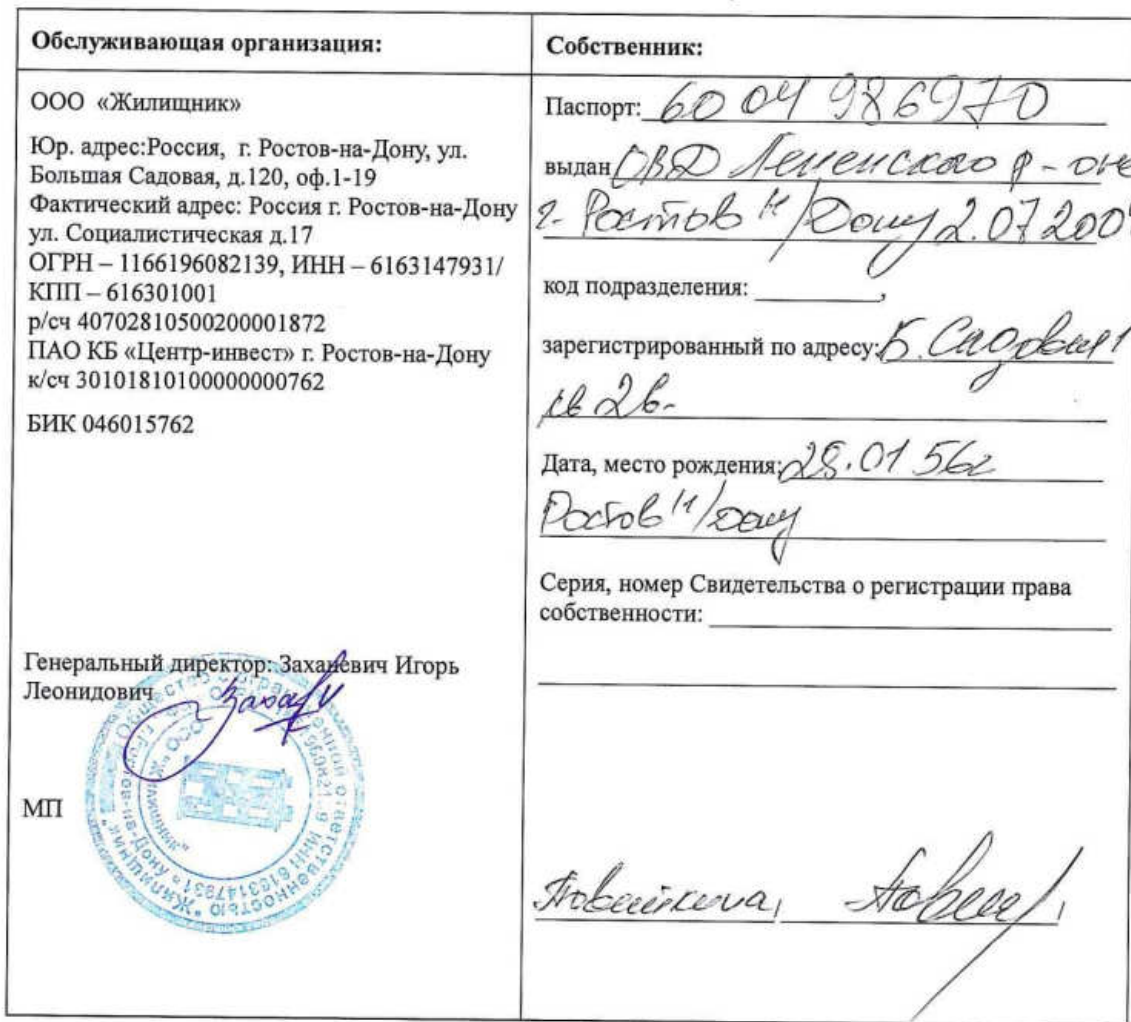 Обслуживающая организация:
ООО «Жилищник»
Юр. адрес:Россия, г. Ростов-на-Дону, ул.
Большая Садовая, д.120, оф.1-19
Фактический адрес: Россия г. Ростов-на-Дону
ул. Социалистическая д.17
ОГРН – 1166196082139, ИНН – 6163147931/
КПП – 616301001
р/сч 40702810500200001872
ПАО КБ «Центр-инвест» г. Ростов-на-Дону
к/сч 30101810100000000762
БИК 046015762
Генеральный директор: Заханевич Игорь
Леонидович
МП
Собственник:
Паспорт: 60 04 986970
выдан ОВД Ленинского р-она
г. Ростов н/Дону 2.07.200
код подразделения: ,
зарегистрированный по адресу: Б. Садовая 1
кв 2в-
Дата, место рождения: 28.01 56г
Ростов н/Дону
Серия, номер Свидетельства о регистрации права
собственности: